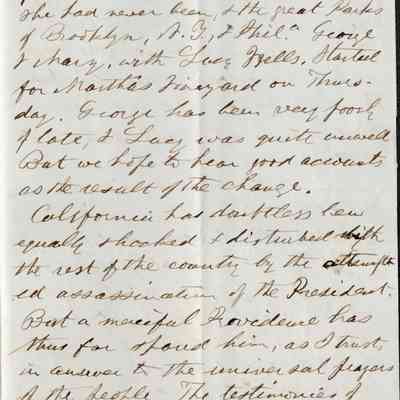 she had never been, & the great Parks
of Brooklyn, N.Y., & Phil.ª George
& Mary, with Lucy Wells, started
for Martha's Vineyard on Thurs-
day. George has been very poorly
of late, & Lucy was quite unwell
But we hope to hear good accounts
as the result of the change.
California has doubtless been
equally shocked & disturbed with
the rest of the country by the attempt
ed assassination of the President.
But a merciful Providence has
thus far spared him, as I trust,
in answer to the universal prayers
of the people. The testimonies of